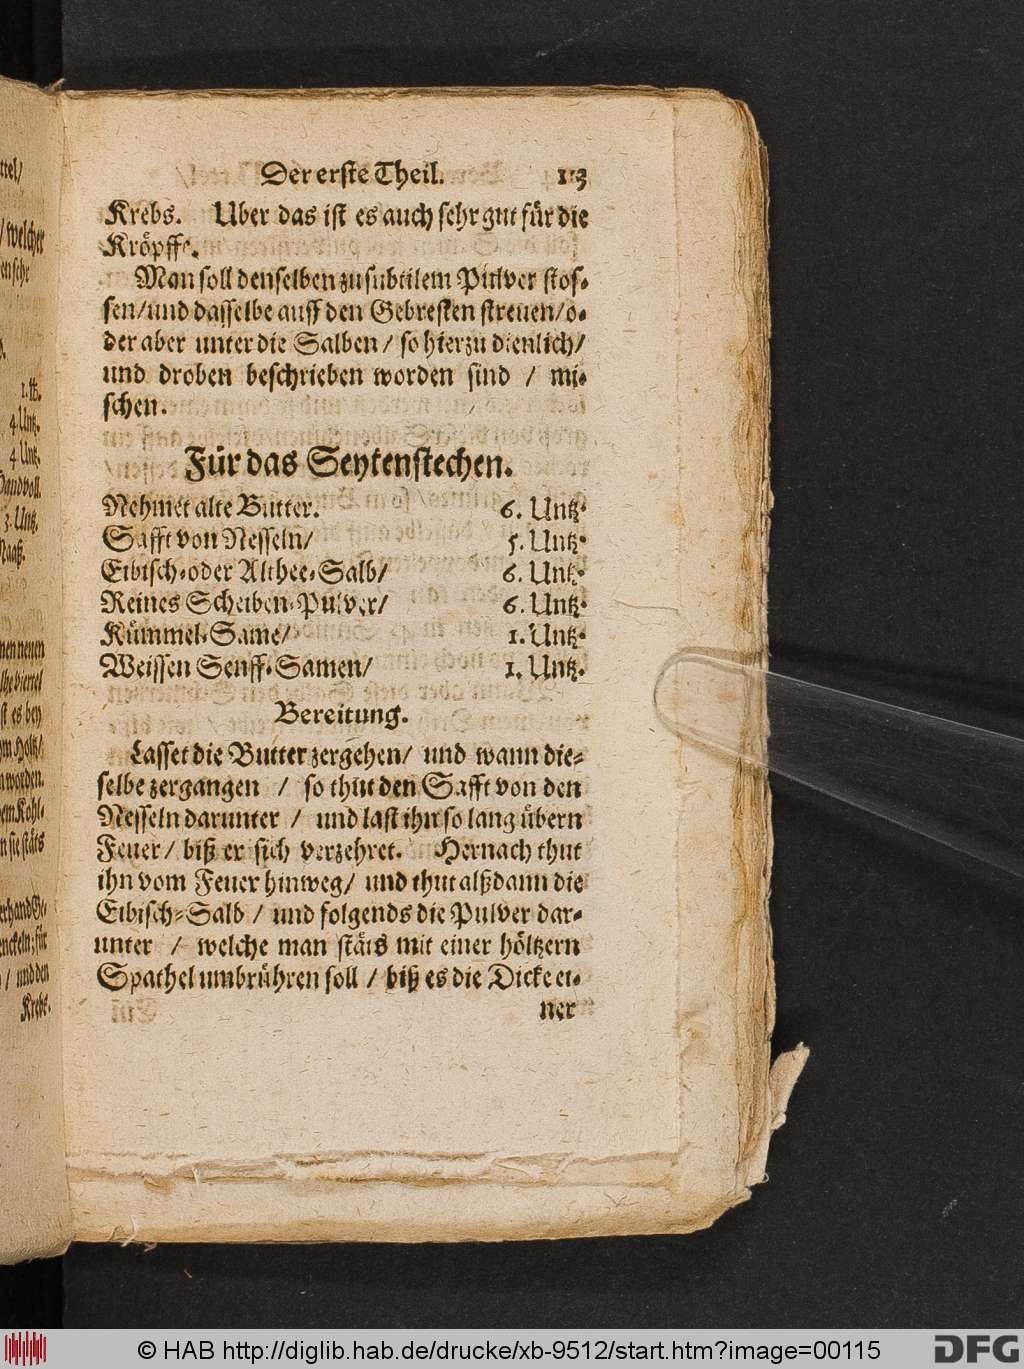 Der erste Theil. 113
Krebs. Uber das ist es auch sehr gut für die
Kröpffe.
Man soll denselben zu subtilem Pulver stos-
sen/und dasselbe auff den Gebresten streuen/o-
der aber unter die Salben / so hierzu dienlich/
und droben beschrieben worden sind / mi-
schen.
Für das Seytenstechen.
Nehmet alte Butter. 6. Untz.
Safft von Nesseln/ 5. Untz.
Eibisch-oder Althee-Salb/ 6. Untz.
Reines Scheiben-Pulver/ 6. Untz.
Kümmel-Same/ 1. Untz.
Weissen Senff-Samen/ 1. Untz.
Bereitung.
Lasset die Butter zergehen/ und wann die-
selbe zergangen / so thut den Safft von den
Nesseln darunter / und last ihn so lang übern
Feuer/ biß er sich verzehret. Hernach thut
ihn vom Feuer hinweg/ und thut alßdann die
Eibisch-Salb / und folgends die Pulver dar-
unter / welche man stäts mit einer höltzern
Spathel umbrühren soll / biß es die Dicke ei-
ner
ttel/
/ welcher
en sehr
1. ℔.
4. Untz.
4. Untz.
Handvoll.
3. Untz.
Maaß.
nen neuen
lbe viertel
st es bey
m Holtz/
worden.
em Kohl-
n sie stäts
erhand Ge-
nckeln; für
/ und den
Krebs.
© HAB http://diglib.hab.de/drucke/xb-9512/start.htm?image=00115
DFG